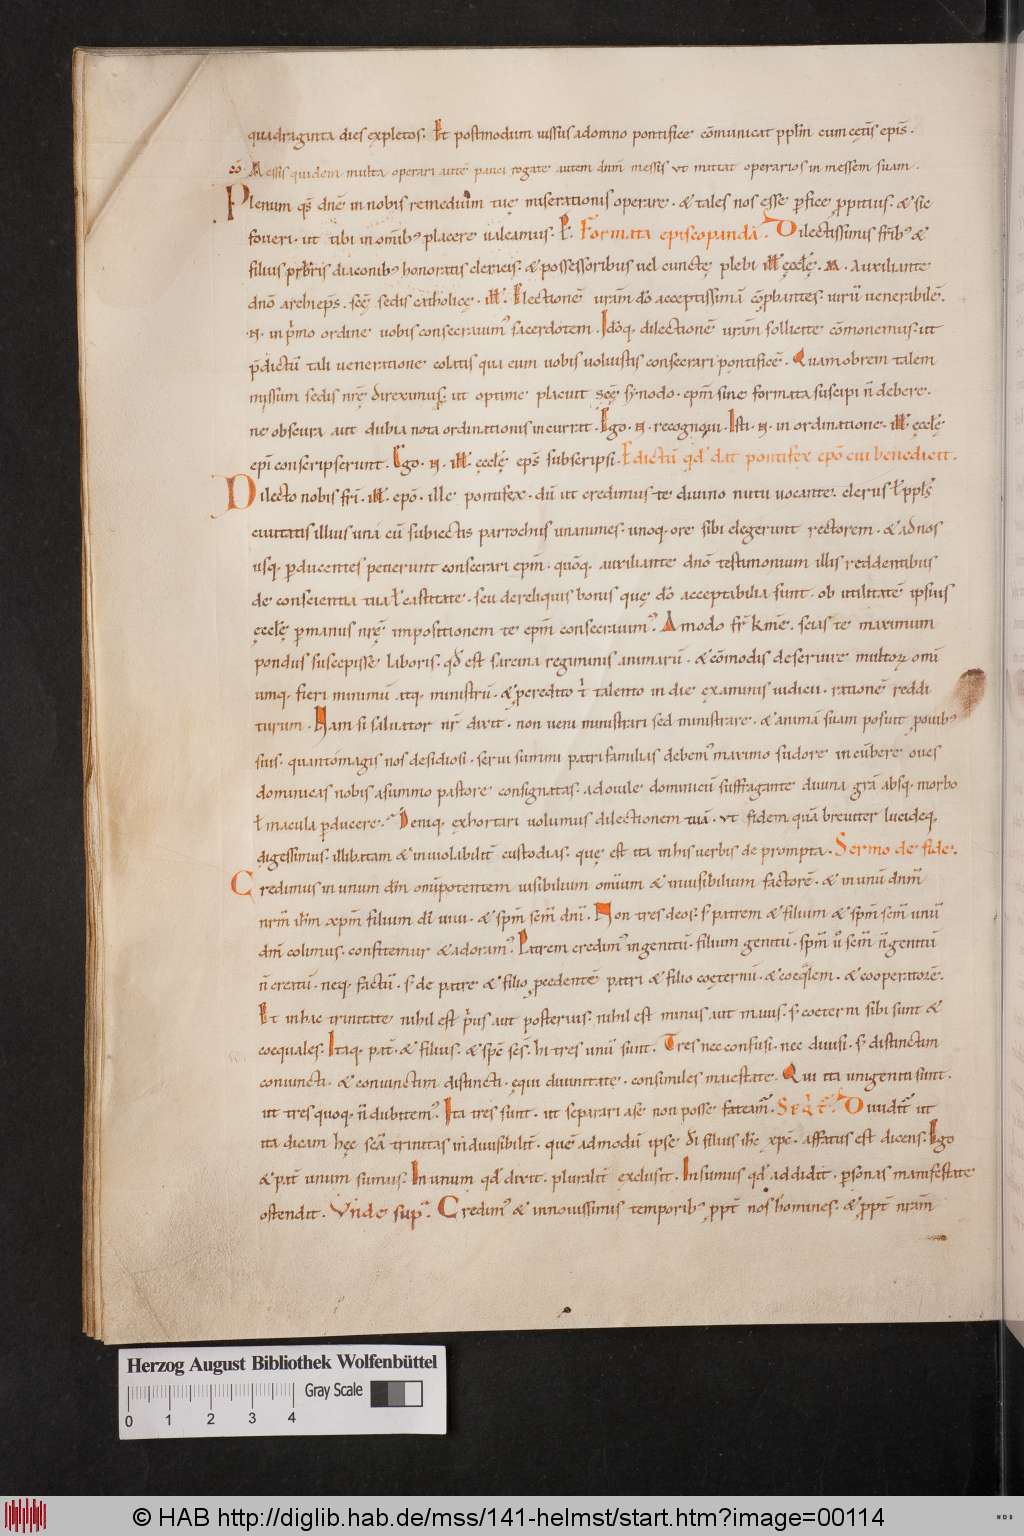 quadraginta dies expletos. Et postmodum iussus adomno pontifice cōmunicat pplm̄ cum cęt̄is ep̄is.
cō. Messis quidem multa operari autē pauci rogate autem dnm̄ messis ut mittat operarios in messem suam.
Plenum qs̄ dnē in nobis remedium tuę miserationis operare. & tales nos esse perfice propitius. & sic
foueri. ut tibi in omib; placere ualeamus. Formata episcopanda. Dilectissimus frīb; &
filius prb̄ris diaconib; honoratis clericis. & possessoribus uel cunctę plebi ill̄ ęcclę̄. N. Auxiliante
dnō archiep̄s. scę̄ sedis catholicę. ill̄. Electionē uram̄ dō acceptissimā cōprobantes. uirū uenerabilē.
N. in primo ordine uobis consecrauim; sacerdotem. Idōq. dilectionē uram̄ sollicite cōmonemus. ut
p̄dictū tali ueneratione colatis qua eum uobis uoluistis consecrari pontificē. Quam obrem talem
missum sedis nrę̄ direximus. ut optime placuit scę̄ synodo. epm̄ sine formata suscipi n̄ debere.
ne obscura aut dubia nota ordinationis incurrat. Ego. N. recognoui. Isti. N. in ordinatione. ill̄ ęcclę̄
epī conscripserunt. Ego. N. ill̄ ęcclę̄ ep̄s subscripsi. Edictū qd̄ dat pontifex epō cui benedicit.
Dilecto nobis frī. ill̄. epō. ille pontifex. dū ut credimus te diuino nutu uocante. clerus ł ppls̄
ciuitatis illius una cū subiectis parrochiis unanimes. unoq. ore sibi elegerunt rectorem. & ad nos
usq. perducentes petierunt consecrari epm̄. quōq. auxiliante dnō testimonium illis reddentibus
de conscientia tua ł castitate. seu de reliquis bonis que dō acceptabilia sunt. ob utilitatē ipsius
ęcclę̄ per manus nrę̄ impositionem te epm̄ consecrauim;. Amodo fr̄ kmē. scias te maximum
pondus suscepisse laboris. qd̄ est sarcina regiminis animarū. & cōmodis deseruire multorꝝ omī
umq. fieri minimū atq. ministrū. & p credito tibi talento in die examinis iudicii. rationē reddi
turum. Nam si saluator nr̄ dixit. non ueni ministrari sed ministrare. & animā suam posuit p ouib;
suis. quantomagis nos desidiosi. serui summi patris familias debem; maximo sudore incūbere oues
dominicas nobis asummo pastore consignatas. ad ouile dominicū suffragante diuina grā absq. morbo
ł macula perducere. Deniq. exhortari uolumus dilectionem tuā. ut fidem quā breuiter lucideq.
digessimus. illibatam & inuiolabilit̄ custodias. que est ita in his uerbis de prompta. Sermo de fide.
Credimus in unum dm̄ omīpotentem uisibilium omīum & inuisibilium factorē. & in unū dnm̄
nrm̄ ihm̄ xpm̄ filium dī uiui. & spm̄ scm̄ dnī. Non tres deos. s̄ patrem & filium & spm̄ scm̄ unū
dm̄ colimus. confitemur & adoram;. Patrem credim; ingenitū. filium genitū. spm̄ u̇ scm̄ n̄ genitū
n̄ creatū. neq. factū. s̄ de patre & filio pcedentē patri & filio coęternū. & coeqlem. & cooperatorē.
Et in hac trinitate nihil est p̄us aut posterius. nihil est minus aut maius. s̄ coeterni sibi sunt &
coequales. Itaq. pat̄. & filius. & spc̄ scs̄. hi tres unū sunt. Tres nec confusi. nec diuisi. s̄ distinctim
coniuncti. & coniunctim distincti. equi diuinitate. consimiles maiestate. Qui ita unigeniti sunt.
ut tres quoq. n̄ dubitem;. Ita tres sunt. ut separari a se non posse fateam̄. Diuidit̄ ut
ita dicam hęc scā trinitas indiuisibilit̄. quē admodū ipse dī filius ihc̄ xpc̄. affatus est dicens. Ego
& pat̄ unum sumus. In unum qd̄ dixit. pluralit̄ exclusit. In sumus qd̄ addidit. personas manifestate
ostendit. Unde sup̄. Credim; & in nouissimis temporib; ppt̄ nos homines. & ppt̄ nram̄
Herzog August Bibliothek Wolfenbüttel
Gray Scale
0 1 2 3 4
© HAB http://diglib.hab.de/mss/141-helmst/start.htm?image=00114